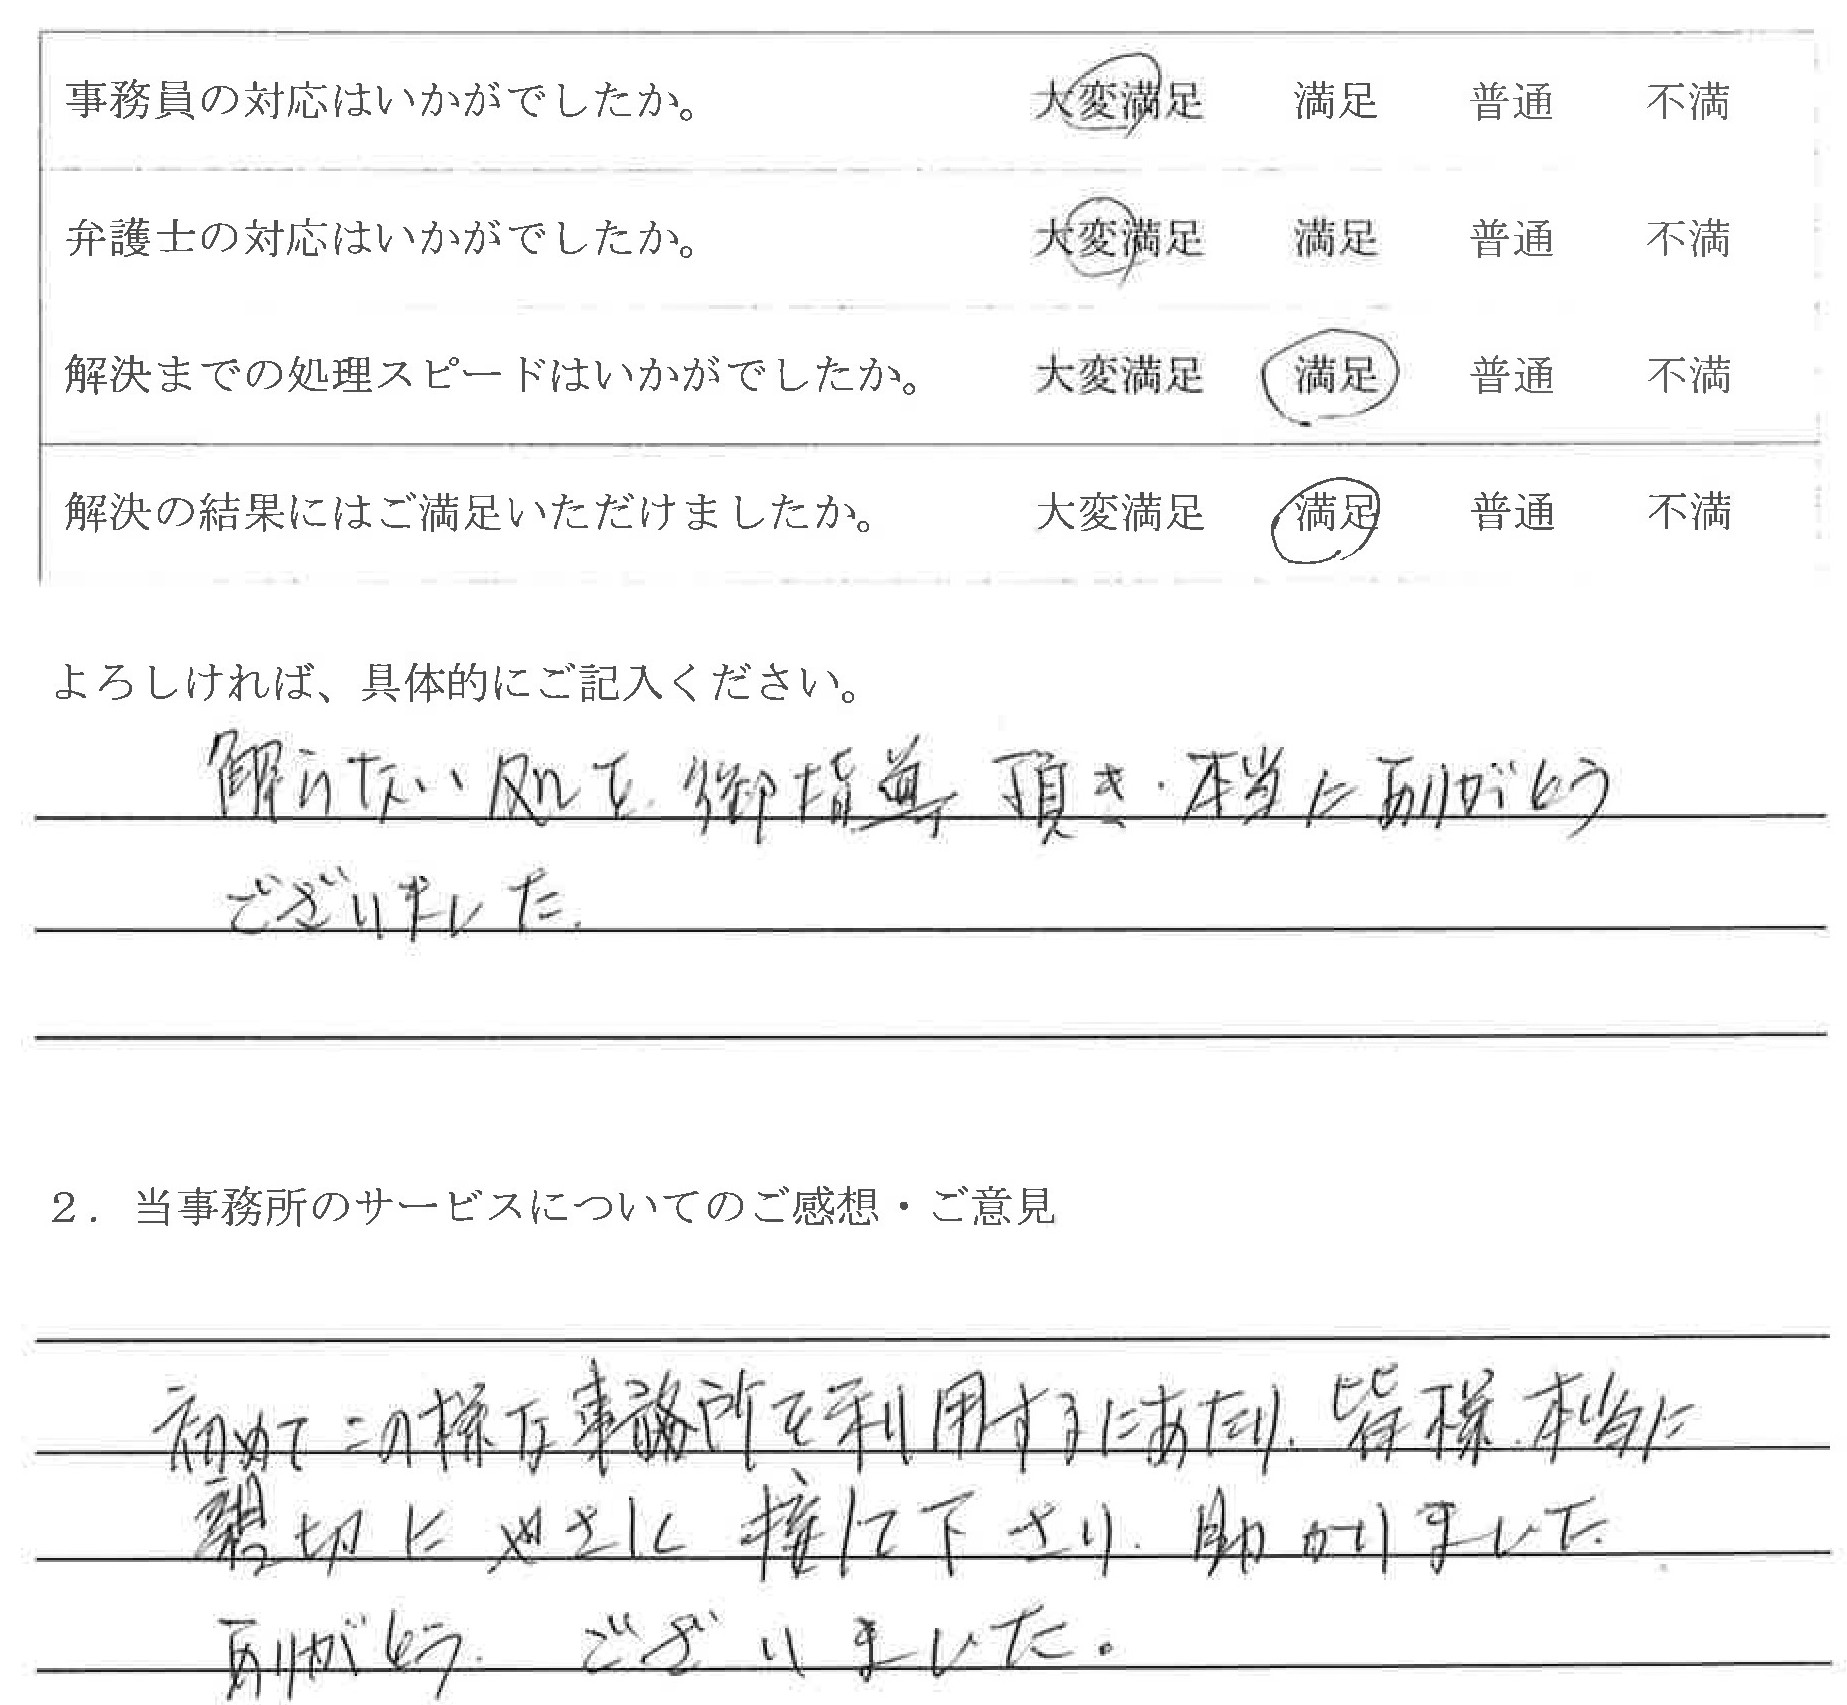 事務員の対応はいかがでしたか。 大変満足 満足 普通 不満
弁護士の対応はいかがでしたか。 大変満足 満足 普通 不満
解決までの処理スピードはいかがでしたか。 大変満足 満足 普通 不満
解決の結果にはご満足いただけましたか。 大変満足 満足 普通 不満
よろしければ、具体的にご記入ください。
解らない処を、御指導頂き、本当にありがとう
ございました。
2．当事務所のサービスについてのご感想・ご意見
初めてこの様な事務所を利用するにあたり、皆様、本当に
親切にやさしく接して下さり、助かりました。
ありがとう、ございました。